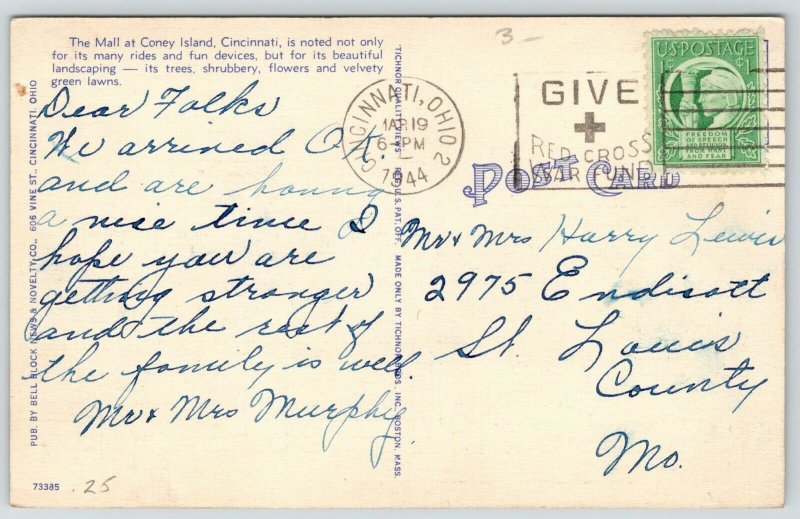 The Mall at Coney Island, Cincinnati, is noted not only
for its many rides and fun devices, but for its beautiful
landscaping — its trees, shrubbery, flowers and velvety
green lawns.
Dear Folks
We arrived O.K.
and are having
a nice time I
hope you are
getting stronger
and the rest of
the family is well.
Mr & Mrs Murphy
73385
.25
PUB. BY BELL BLOCK NEWS & NOVELTY CO., 606 VINE ST., CINCINNATI, OHIO
"TICHNOR QUALITY VIEWS" U.S. PAT. OFF. MADE ONLY BY TICHNOR BROS., INC., BOSTON, MASS.
3-
CINCINNATI, OHIO 2
MAR 19
6-PM
1944
GIVE
RED CROSS
WAR FUND
U.S. POSTAGE
1¢ 1¢
FREEDOM
OF SPEECH
AND RELIGION
FROM WANT
AND FEAR
POST CARD
Mr & Mrs Harry Lewis
2975 Endicott
St. Louis
County
Mo.